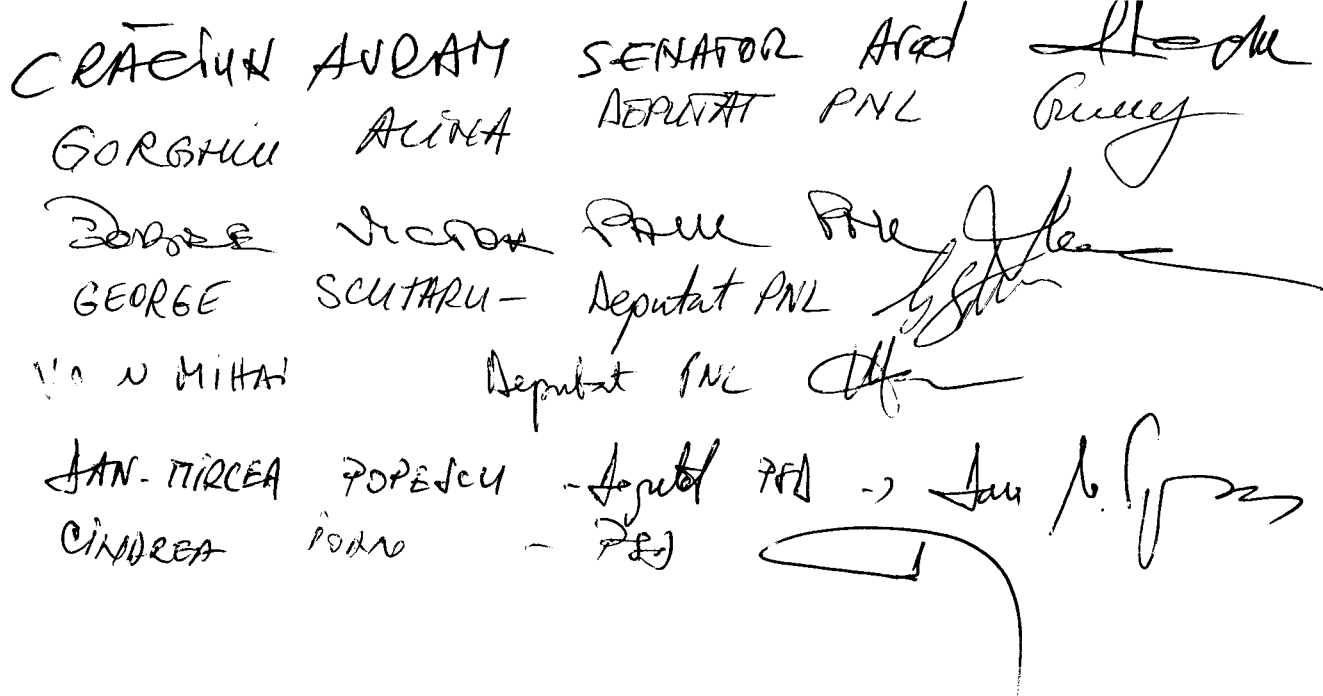 CRĂCIUN AVRAM SENATOR Arad
GORGHIU ALINA DEPUTAT PNL
DOBRE VICTOR PAUL PNL
GEORGE SCUTARU - Deputat PNL
MIHAI Deputat PNL
DAN-MIRCEA POPESCU - Deputat PSD -> Dan M. Popescu
CINDREA IOAN - PSD